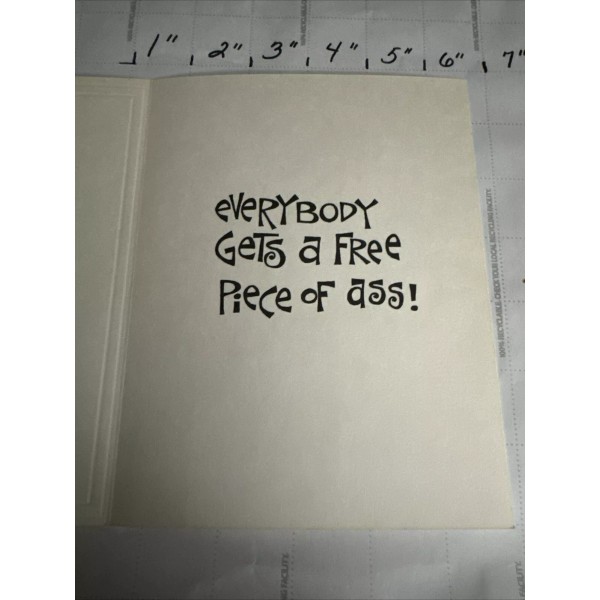 1" 2" 3" 4" 5" 6" 7"
eVeRYBODY
GeTS a FRee
PieCe OF ass!
100% RECYCLABLE. CHECK YOUR LOCAL RECYCLING FACILITY.
FACILITY.